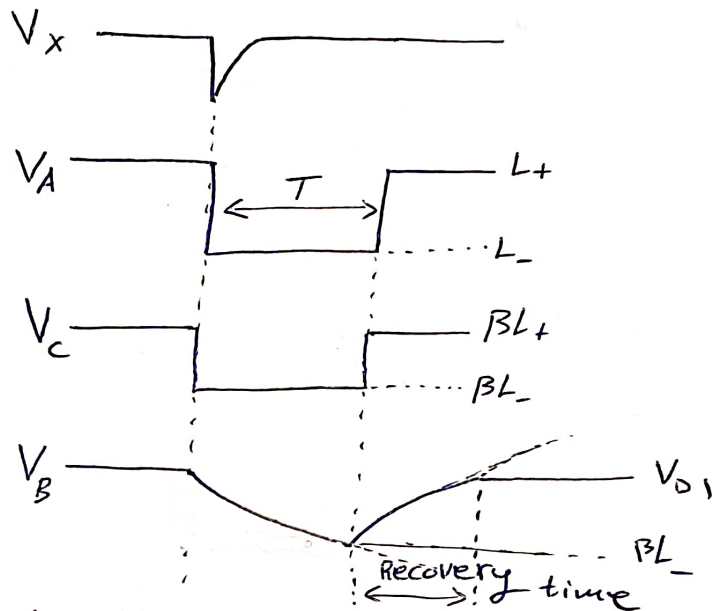 V_X
V_A
T
L+
L_
V_C
βL+
βL_
V_B
V_D1
βL_
Recovery time